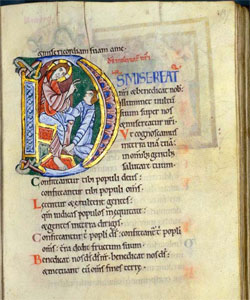 misericordiam suam a me.
D S MISEREAT
nrī & benedicat nob
illuminet uultū
suum super nos &
misereatur nrī.
Vt cognoscamus
in terra uiā tuā:
in omnib; gentib;
salutare tuum.
Confiteantur tibi populi deus:
confiteantur tibi populi om̄s.
Letentur & exultent gentes:
qm̄ iudicas populos in equitate:
& gentes in terra dirigis.
Confiteantur tibi populi d̄s: confiteantur tibi populi
om̄s: terra dedit fructum suum.
Benedicat nos d̄s d̄s nr̄ benedicat nos d̄s:
& metuant eū om̄s fines terre.